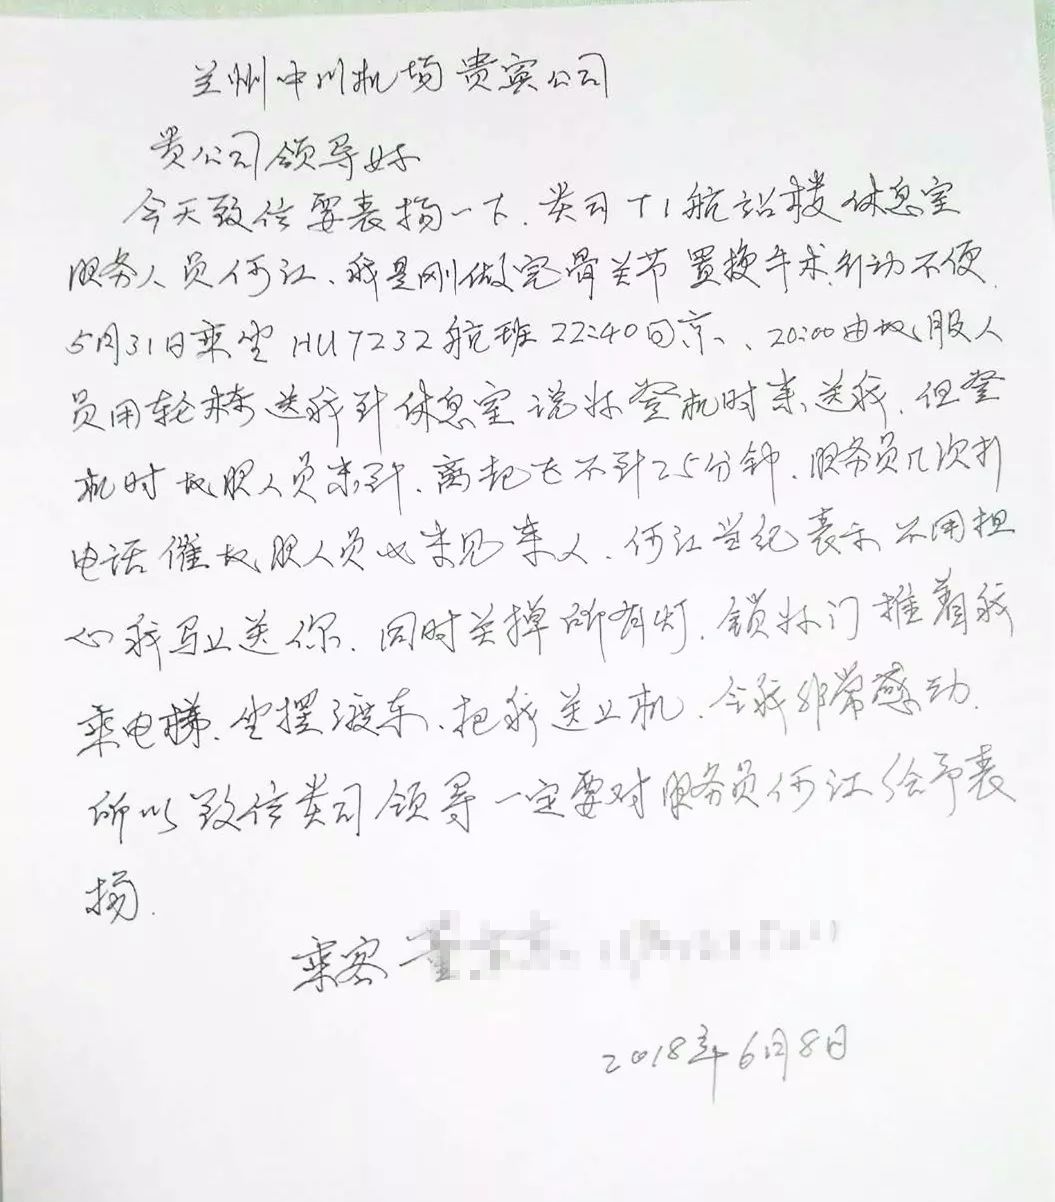 兰州中川机场贵宾公司
贵公司领导好
今天致信要表扬一下、贵司T1航站楼休息室
服务人员何江、我是刚做完骨关节置换手术,行动不便.
5月31日乘坐HU7232航班22:40回京、20:00由地服人
员用轮椅送我到休息室说好登机时来送我.但登
机时地服人员未到.离起飞不到25分钟.服务员几次打
电话催地服人员也未见来人.何江世纪表示不用担
心我马上送你.同时关掉所有灯.锁好门推着我
乘电梯.坐摆渡车、把我送上机.令我非常感动.
所以致信贵司领导一定要对服务员何江给予表
扬.
乘客 董
2018年6月8日